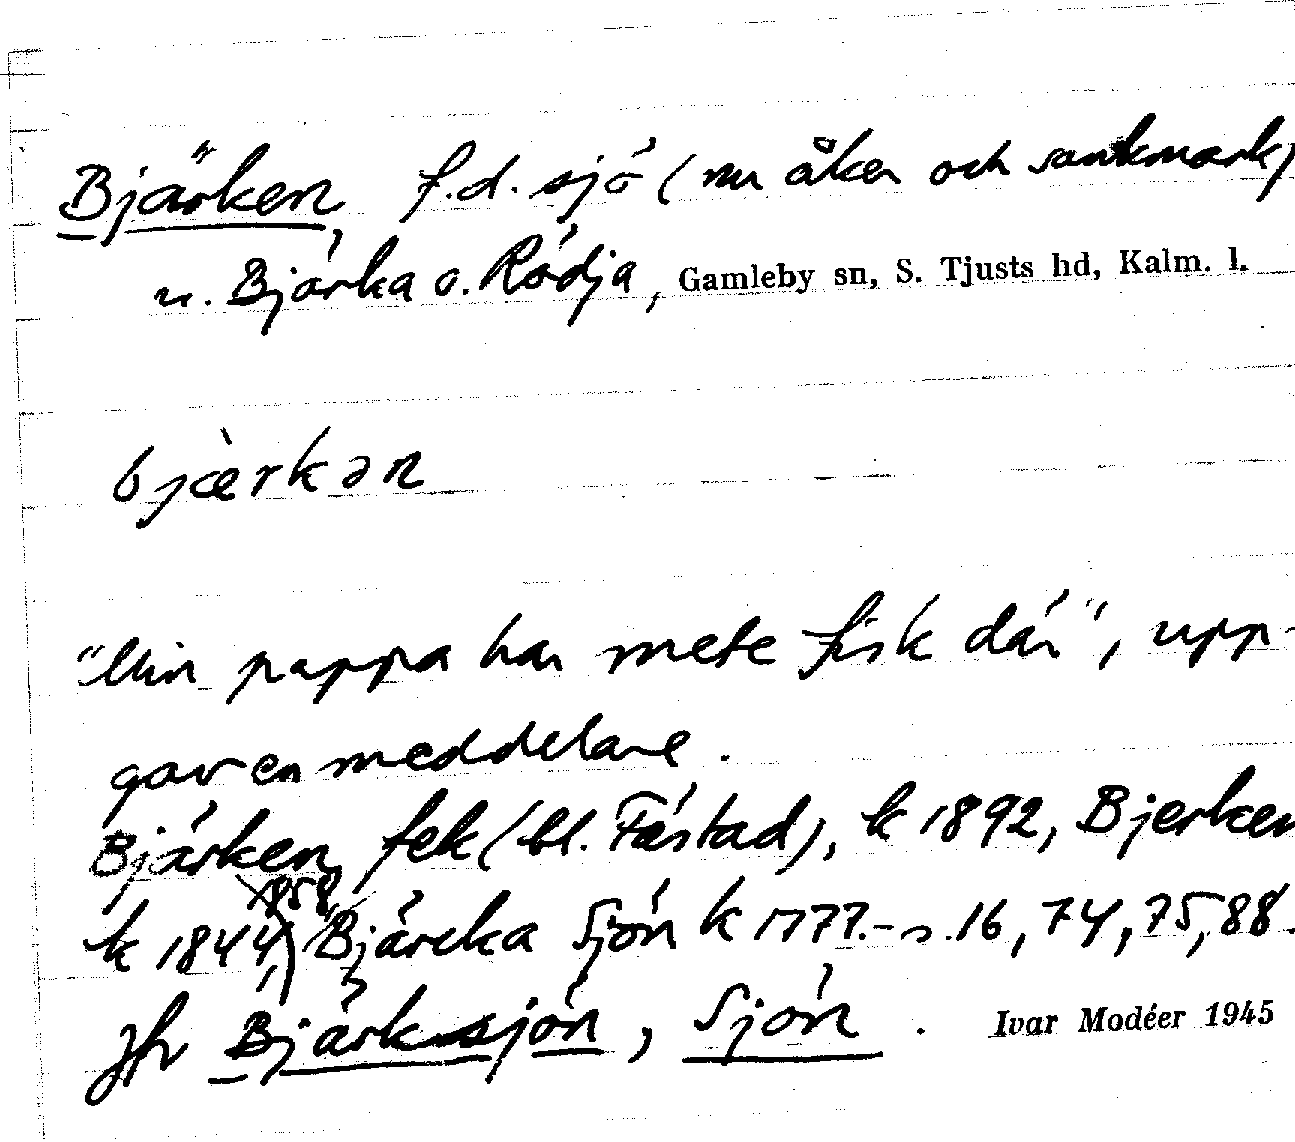 Bjärken, f.d. sjö (nu åker och sankmark)
u. Bjärka o. Rödja, Gamleby sn, S. Tjusts hd, Kalm. l.
bjæ̀rkən
"Min pappa har mete fisk där", upp-
gav en meddelare.
Bjärken fek (bl. Fästad), k 1892, Bjerken
1858
k 1844, Bjärcka Sjön k 1777. - s. 16, 74, 75, 88.
Jfr Bjärksjön, Sjön. Ivar Modéer 1945